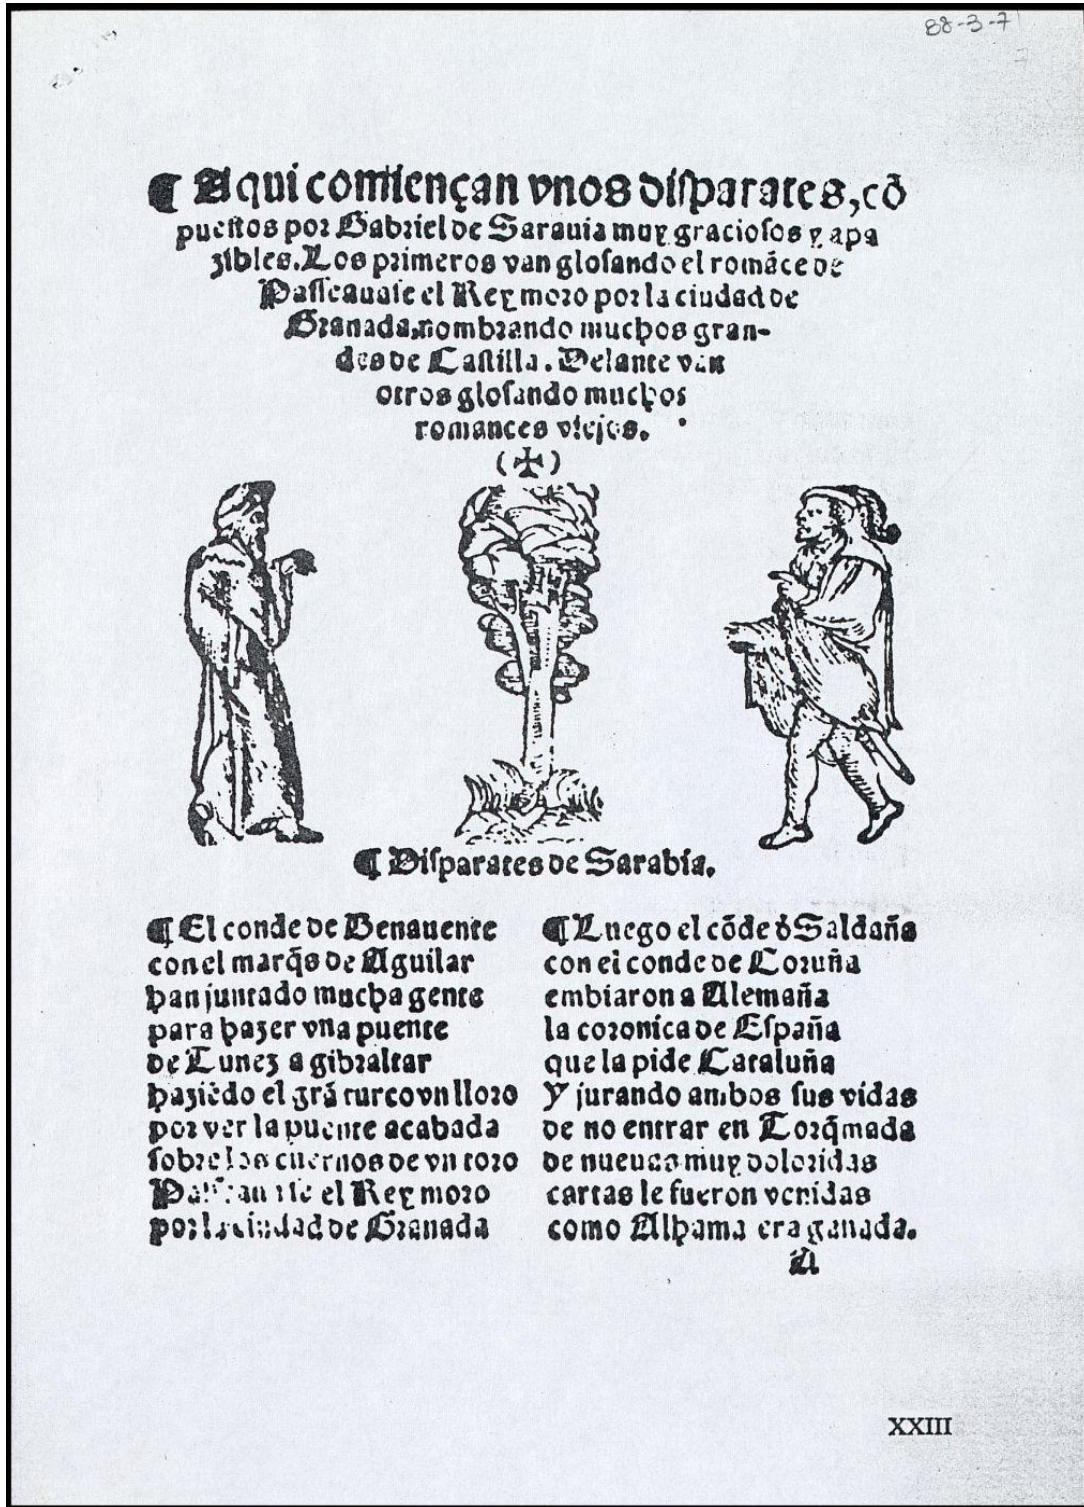 88-3-7
7
¶ Aqui comiençan vnos disparates, cõ
puestos por Gabriel de Sarauia muy graciosos y apa
zibles. Los primeros van glosando el romãce de
Passeauase el Rey moro por la ciudad de
Granada, nombrando muchos gran-
des de Castilla. Delante van
otros glosando muchos
romances viejos.
(✠)
¶ Disparates de Sarabia.
¶ El conde de Benauente
con el marq̃s de Aguilar
han juntado mucha gente
para hazer vna puente
de Tunez a gibraltar
haziẽdo el grã turco vn lloro
por ver la puente acabada
sobre los cuernos de vn toro
Passeauase el Rey moro
por la ciudad de Granada
¶ Luego el cõde d Saldaña
con el conde de Coruña
embiaron a Alemaña
la coronica de España
que la pide Cataluña
Y jurando ambos sus vidas
de no entrar en Torq̃mada
de nueuas muy doloridas
cartas le fueron venidas
como Alhama era ganada.
A
XXIII